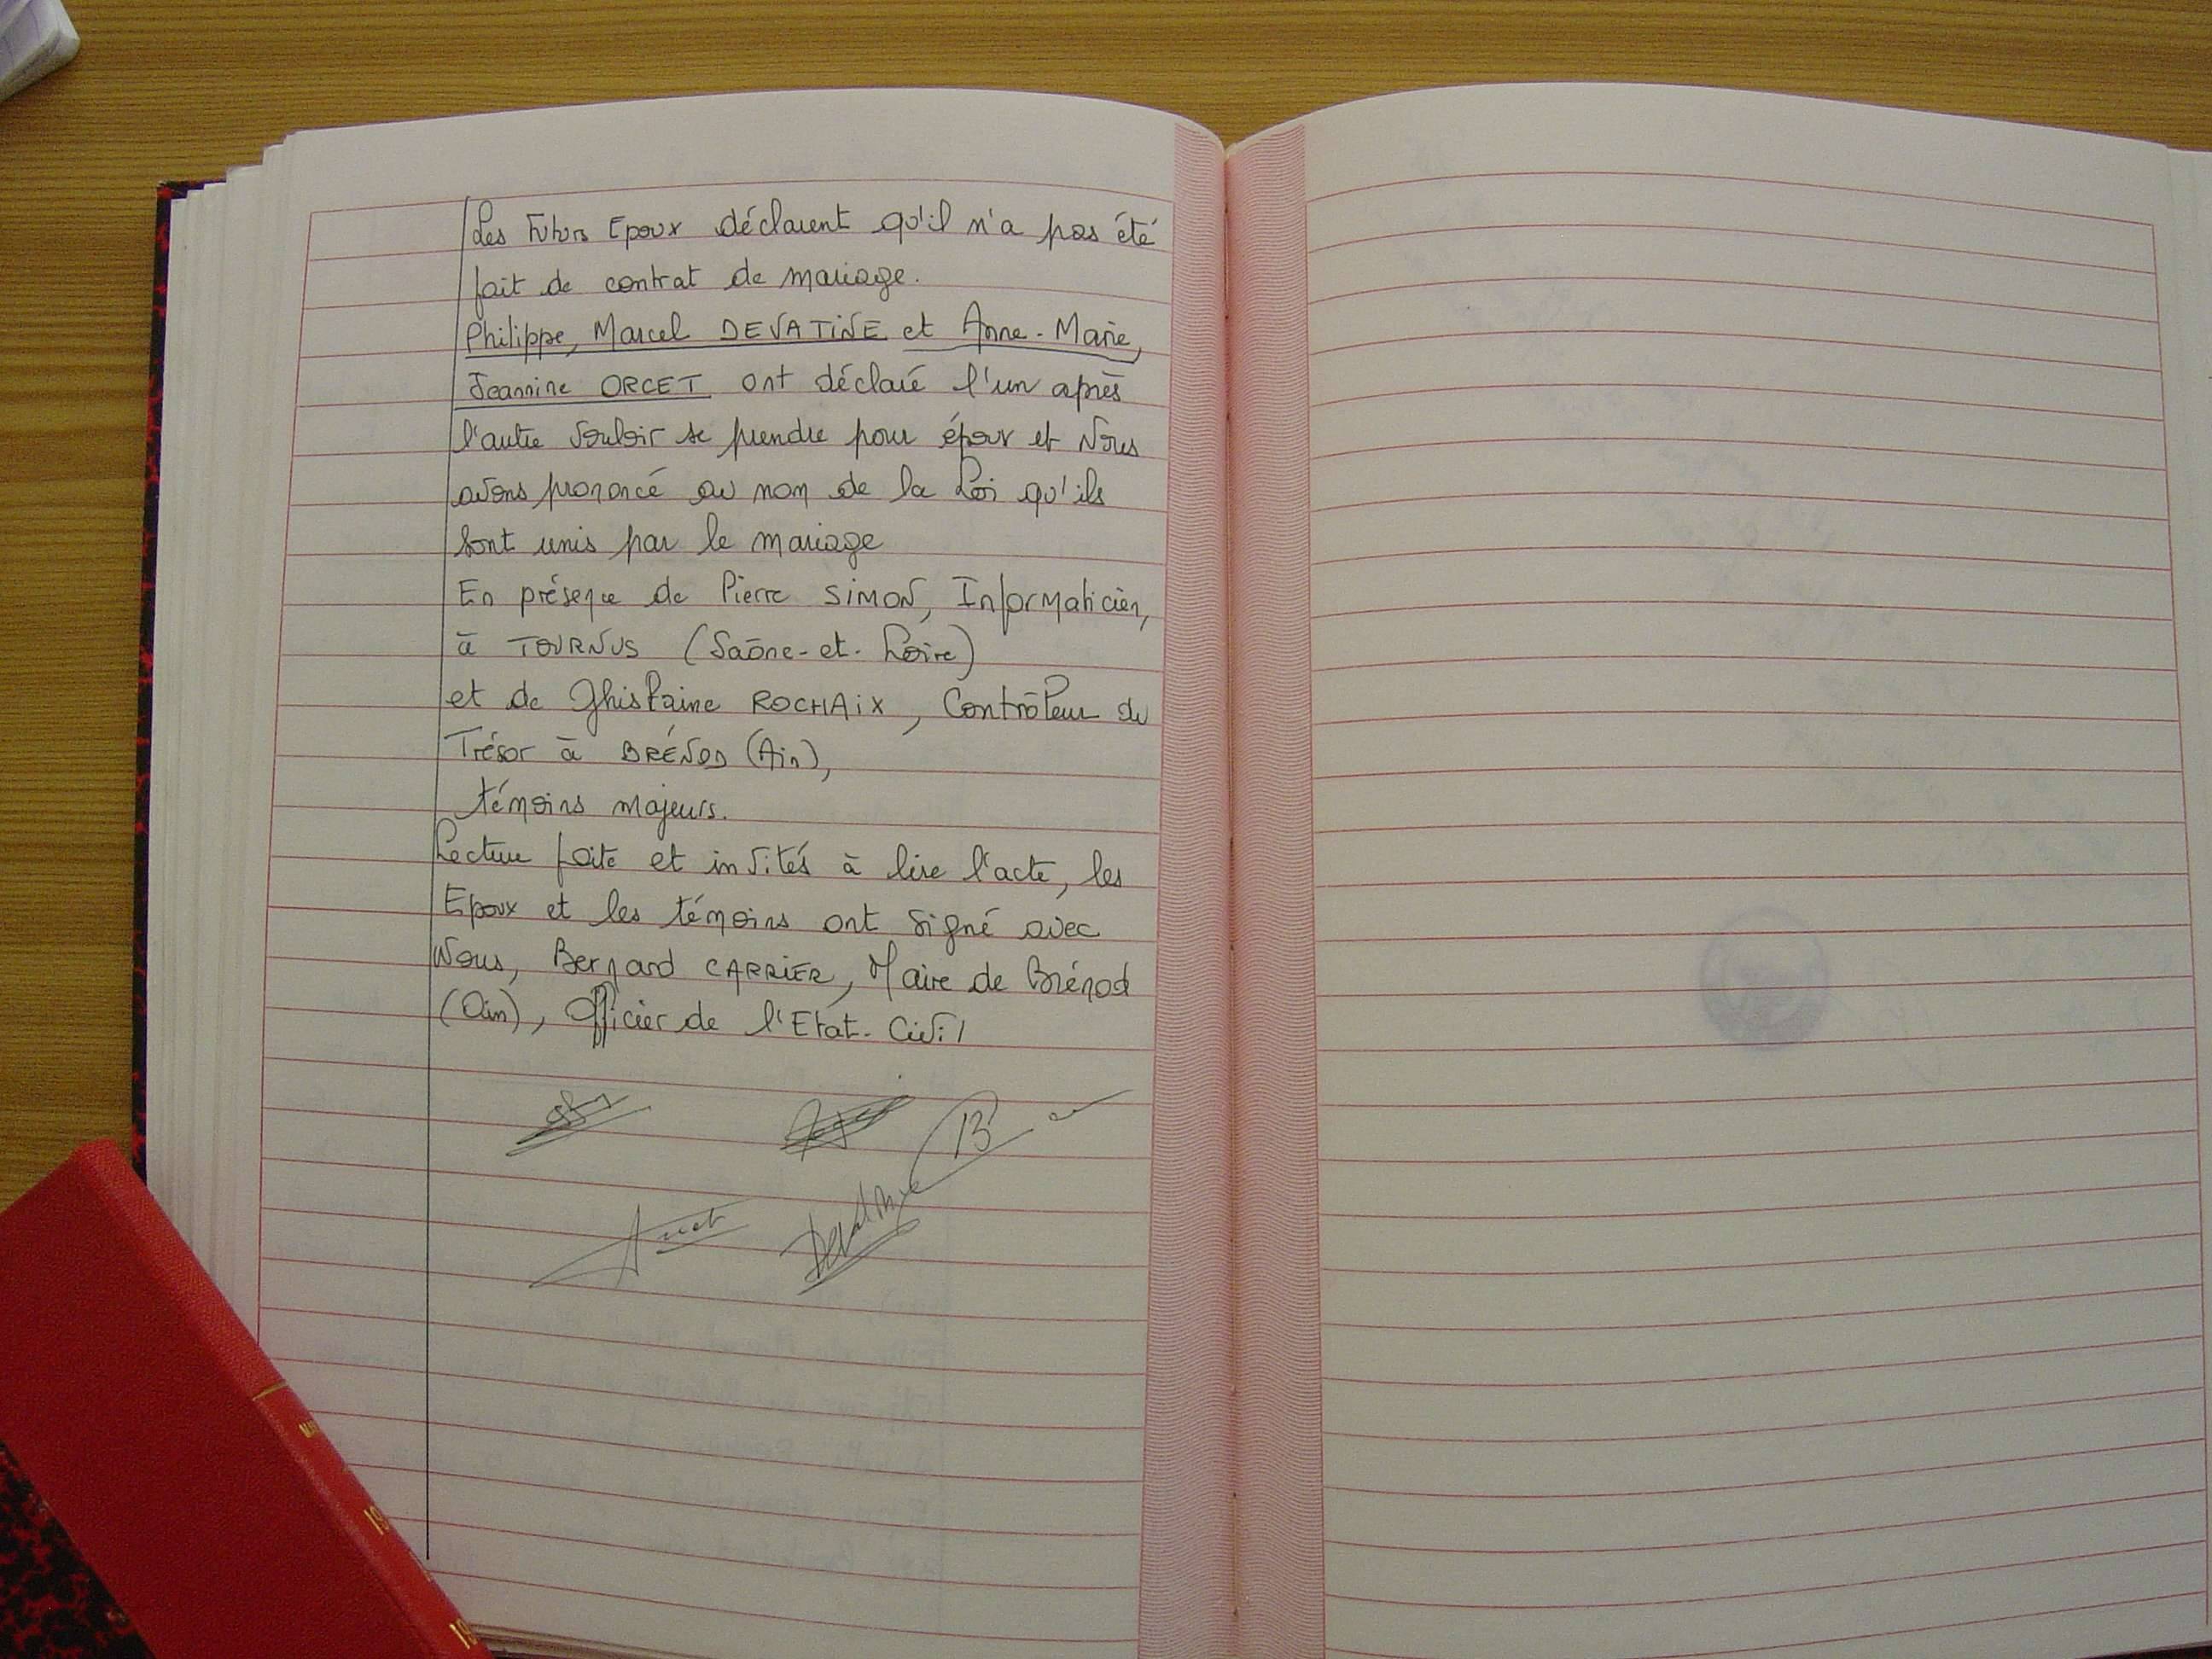 Les Futurs Epoux déclarent qu'il n'a pas été
fait de contrat de mariage.
Philippe, Marcel DEVATINE et Anne-Marie,
Jeannine ORCET ont déclaré l'un après
l'autre vouloir se prendre pour époux et Nous
avons prononcé au nom de la Loi qu'ils
sont unis par le mariage
En présence de Pierre SIMON, Informaticien,
à TOURNUS (Saône-et-Loire)
et de Ghislaine ROCHAIX, Contrôleur du
Trésor à BRÉNOD (Ain),
témoins majeurs.
Lecture faite et invités à lire l'acte, les
Epoux et les témoins ont signé avec
Nous, Bernard CARRIER, Maire de Brénod
(Ain), Officier de l'Etat-Civil
Devatine
19
19